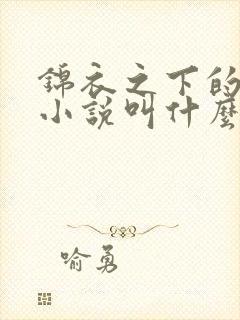 錦衣之下的
小說叫什麼
喻勇